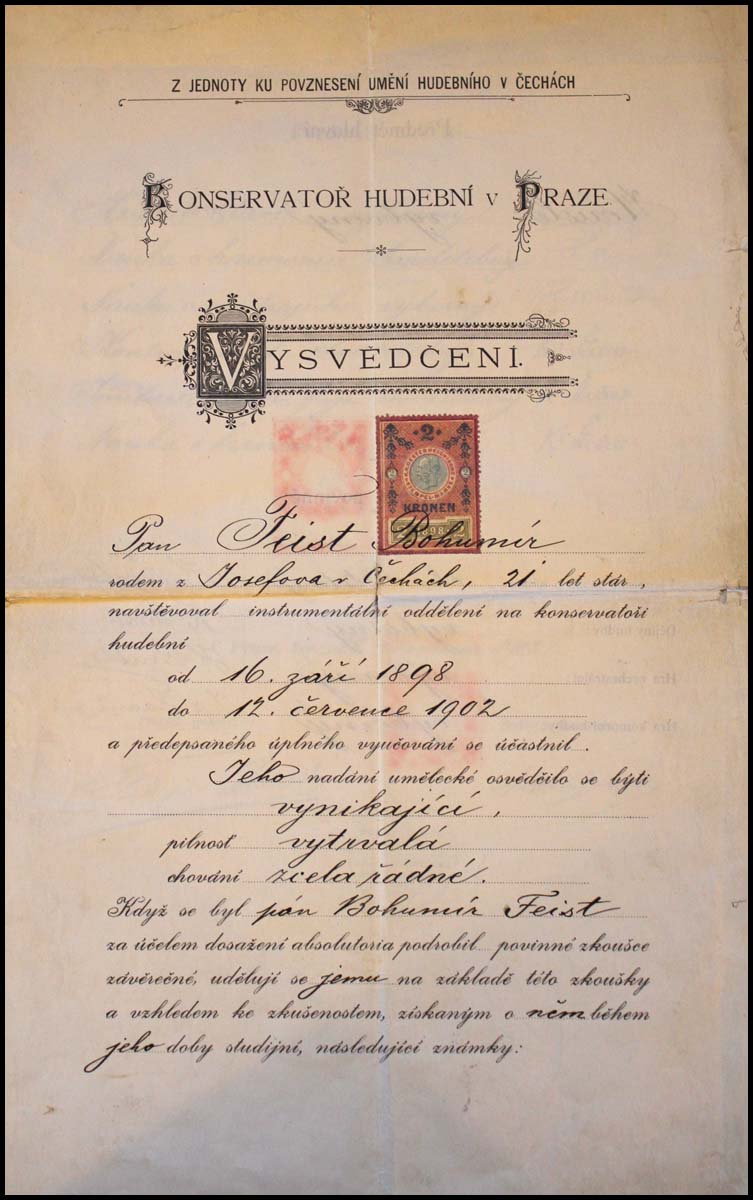 Z JEDNOTY KU POVZNESENÍ UMĚNÍ HUDEBNÍHO V ČECHÁCH
KONSERVATOŘ HUDEBNÍ V PRAZE.
VYSVĚDČENÍ.
2
2 2
KRONEN
1898
Pan Feist Bohumír
rodem z Josefova v Čechách, 21 let stár,
navštěvoval instrumentální oddělení na konservatoři
hudební
od 16. září 1898
do 12. července 1902
a předepsaného úplného vyučování se účastnil.
Jeho nadání umělecké osvědčilo se býti
vynikající,
pilnosť vytrvalá
chování zcela řádné.
Když se byl pán Bohumír Feist
za účelem dosažení absolutoria podrobil povinné zkoušce
závěrečné, udělují se jemu na základě této zkoušky
a vzhledem ke zkušenostem, získaným o něm během
jeho doby studijní, následující známky: